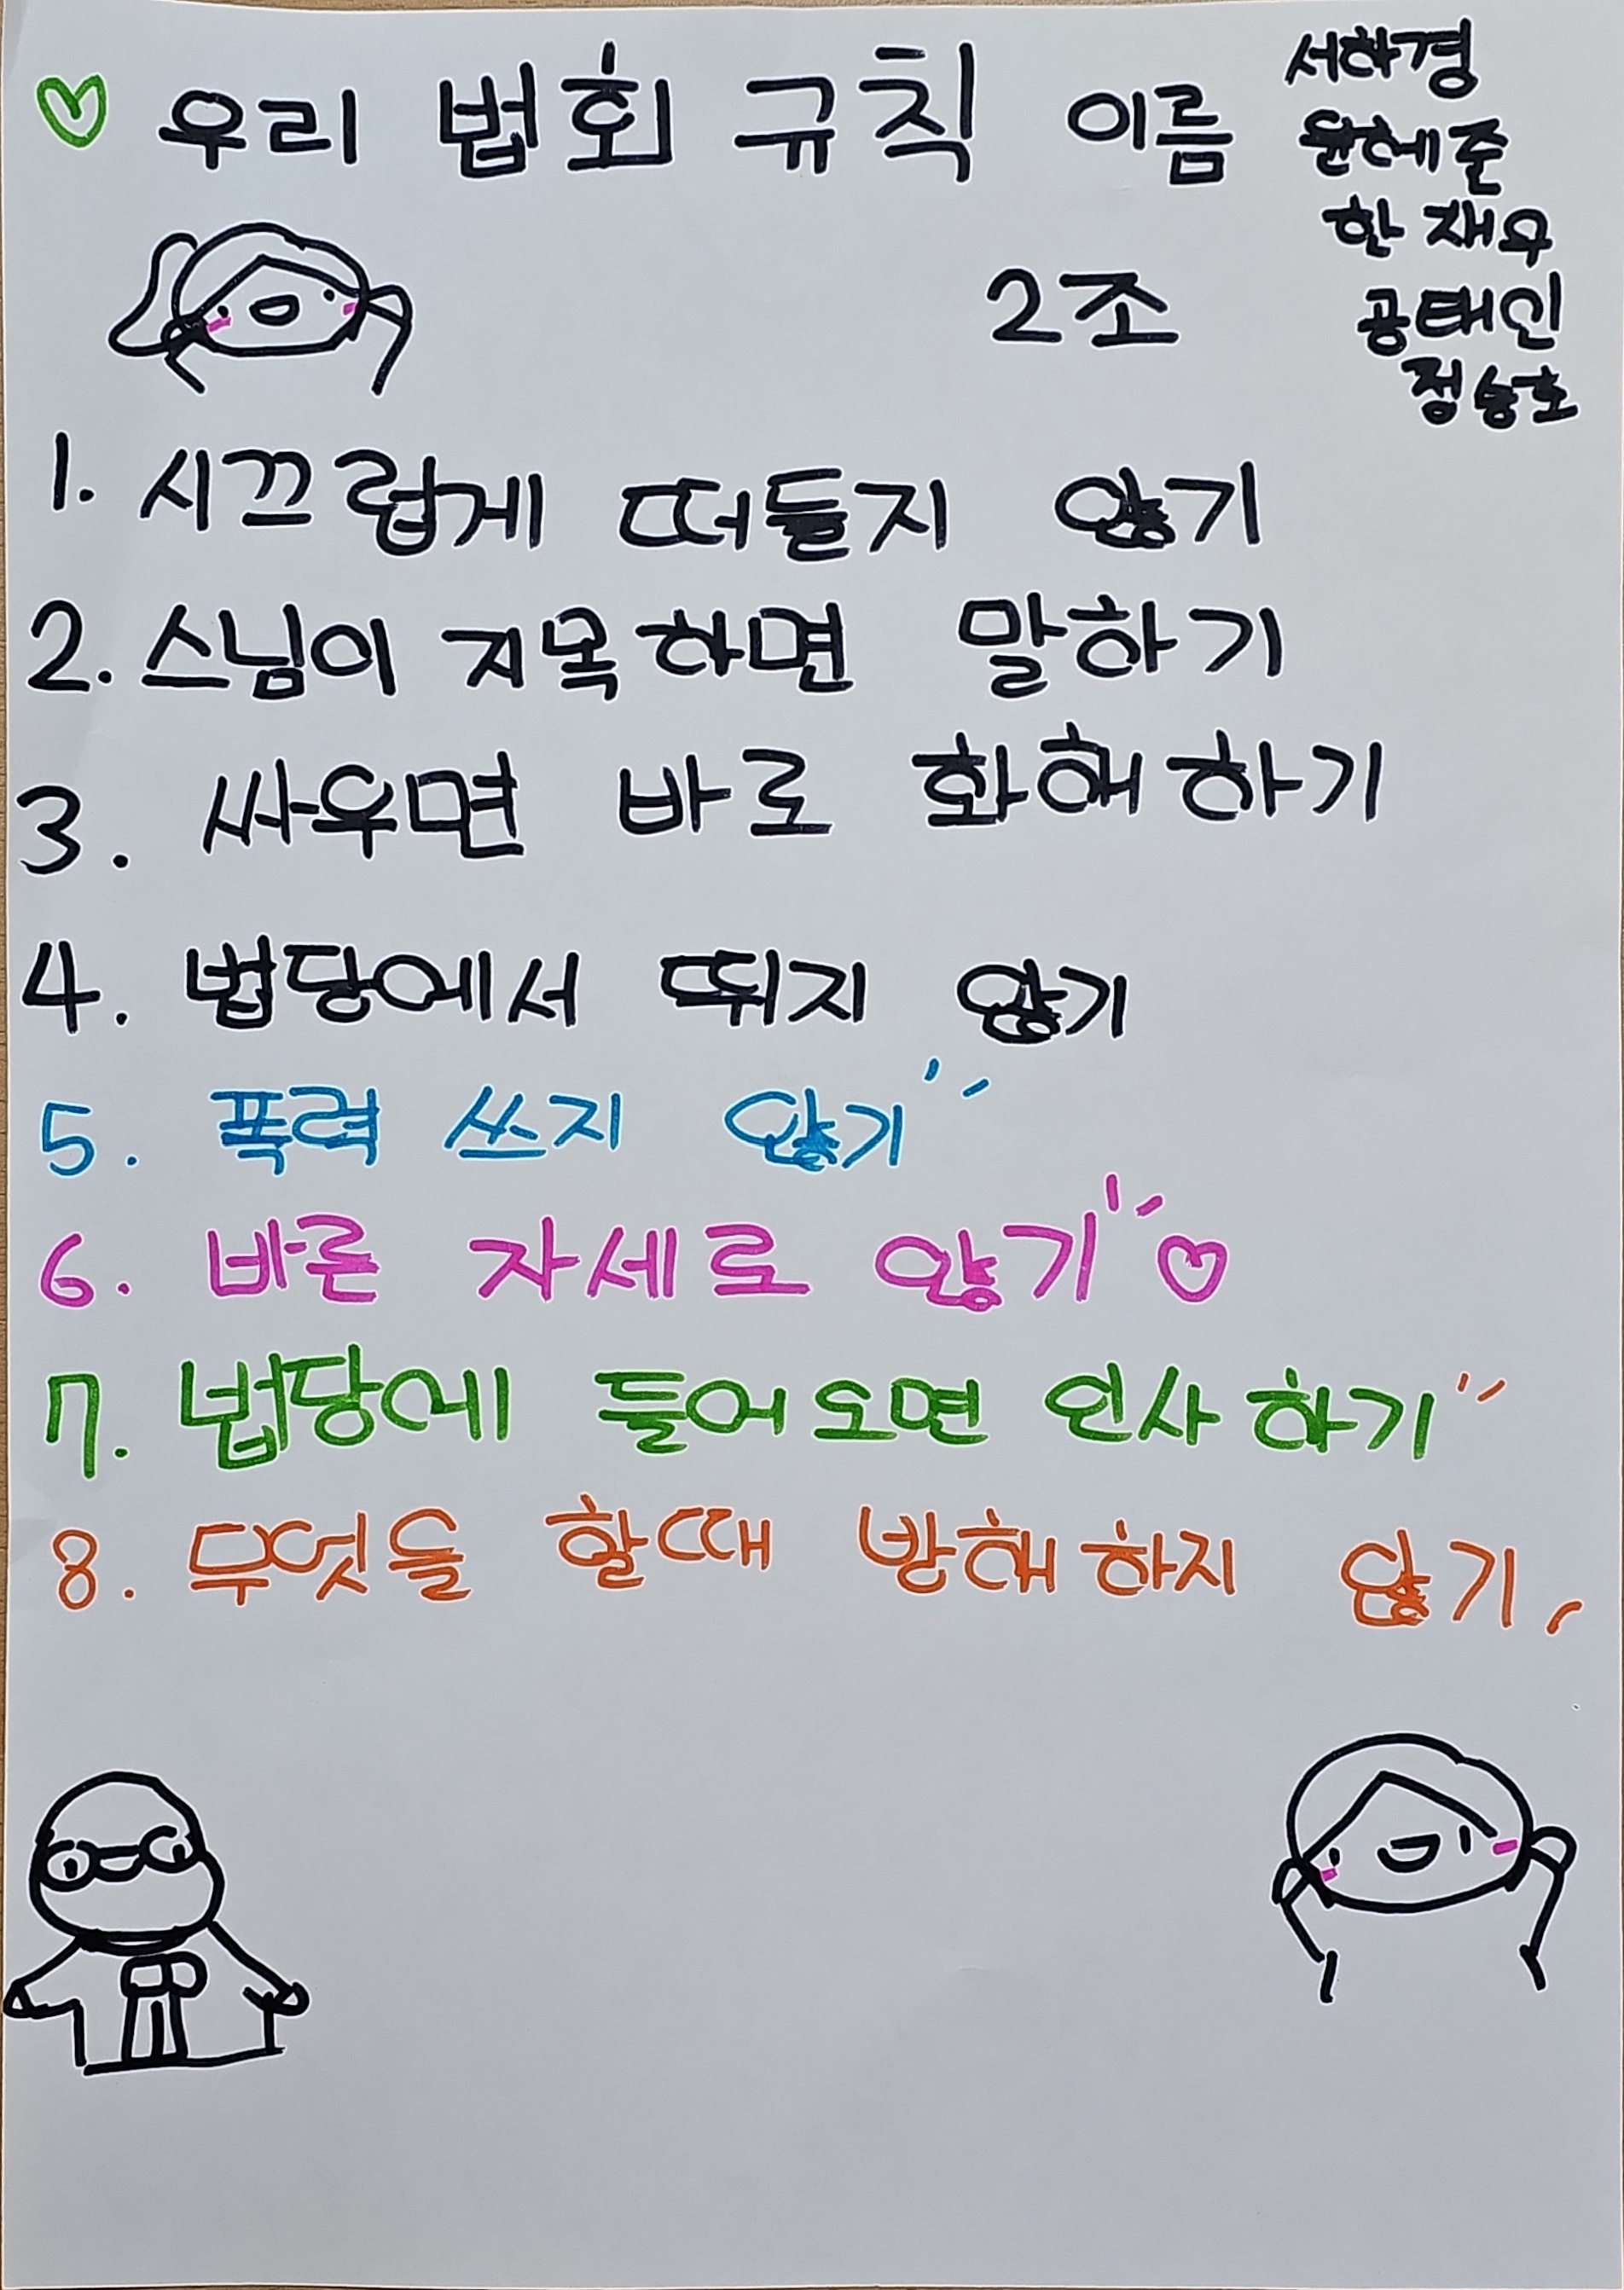 ♡ 우리 법회 규칙 이름
서하경
윤혜준
한재우
공태인
정승호
2조
1. 시끄럽게 떠들지 않기
2. 스님이 지목하면 말하기
3. 싸우면 바로 화해하기
4. 법당에서 뛰지 않기
5. 폭력 쓰지 않기
6. 바른 자세로 앉기♡
7. 법당에 들어오면 인사하기
8. 무엇을 할때 방해하지 않기